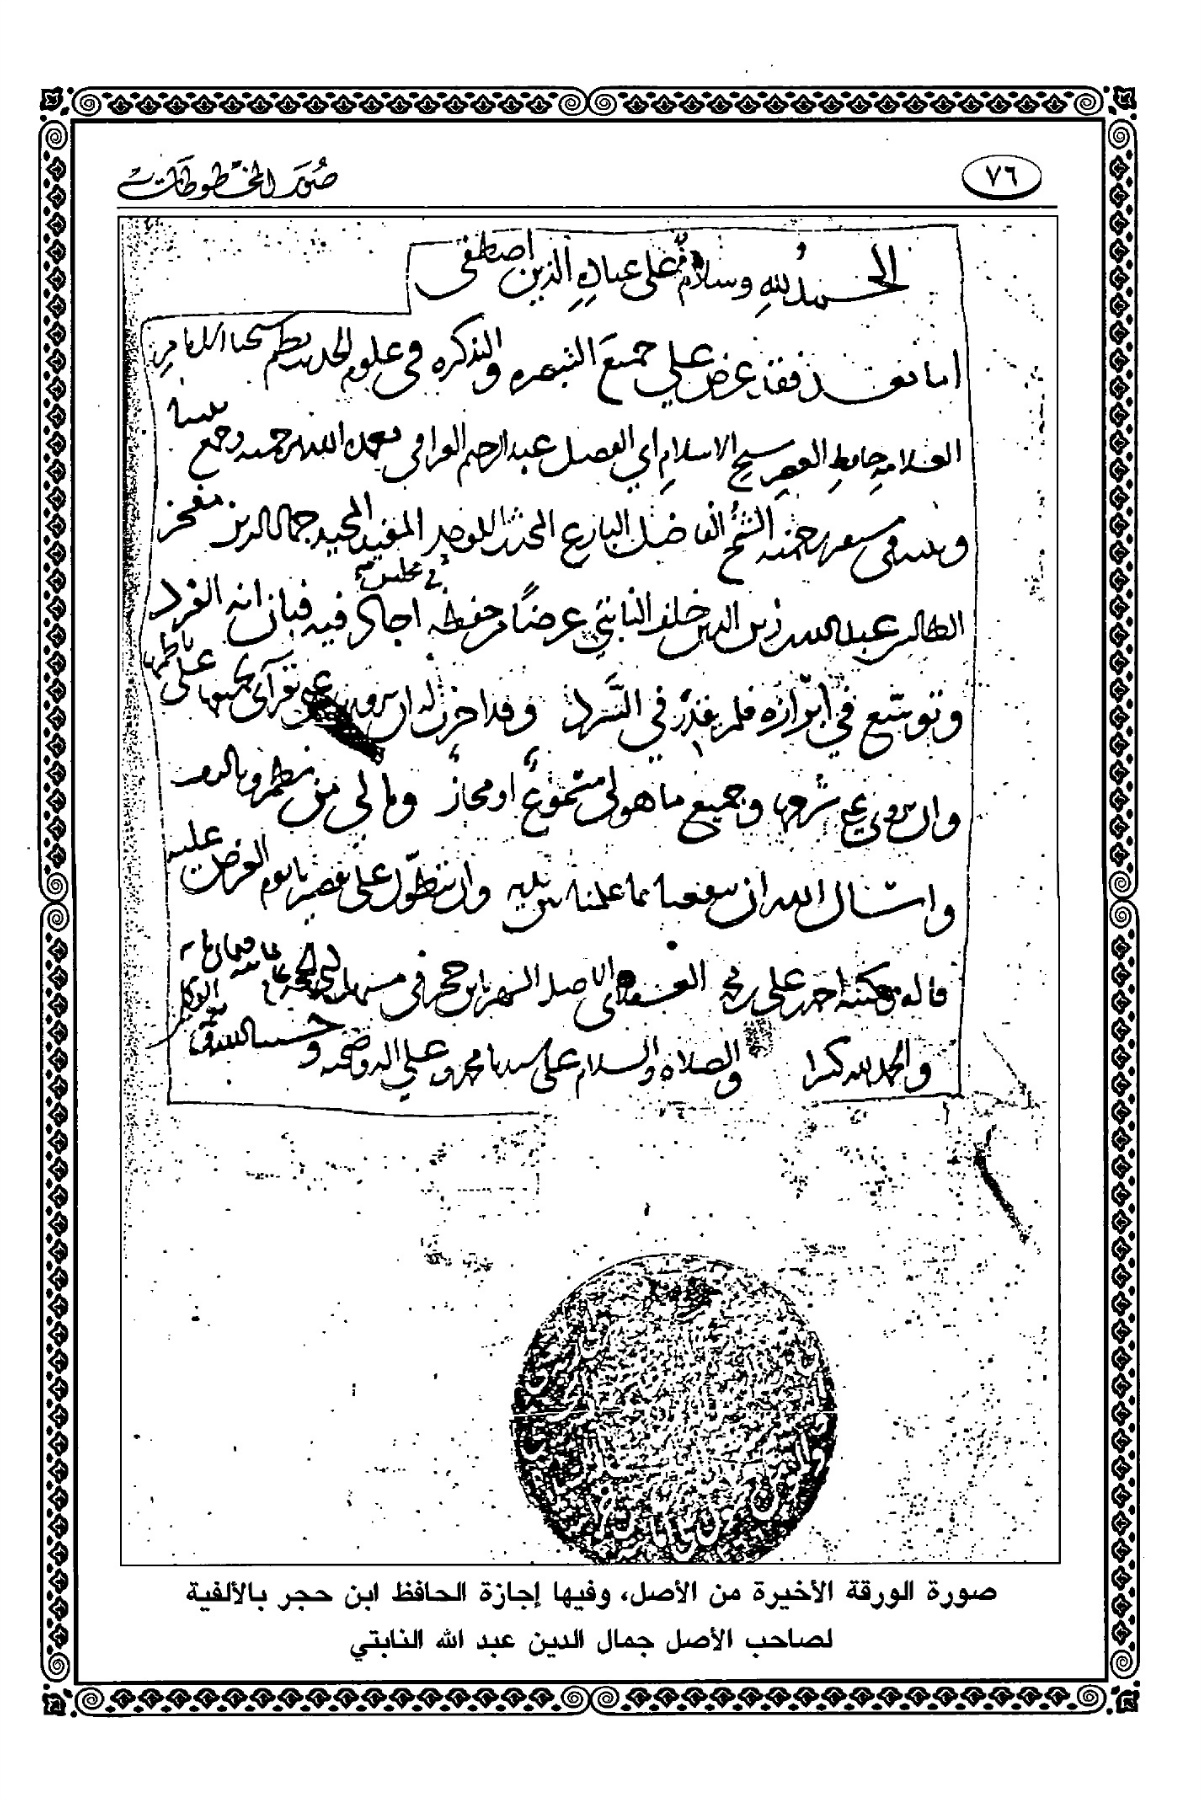 ٧٦
صور المخطوطات
الحمد لله وسلام على عباده الذين اصطفى
اما بعد فقد عرض علي جميع التبصره والتذكره في علوم الحديث نظم شيخنا الامام
العلامه حافظ العصر شيخ الاسلام ابي الفضل عبد الرحيم العراقي تغمده الله برحمته وجمع بيننا
وبينه في مستقر رحمته الشيخ الفاضل البارع المحدث الاوحد المفيد المجيد جمال الدين مفخر
في مجلس
الطالبين عبد الله بن زين الدين خلف النابتي عرضا من حفظه اجاد فيه فبان انه الفرد
وتوسع في ابرازه فلم يغدر في السرد وقد اجزت له ان يرويها عني بقراتي لجميعها على ناظمها
وان يروي عني شرحها وجميع ما هو لي مسموع او مجاز وما لي من نظم وتاليف
واسال الله ان ينفعنا بما علمنا وان يتطول على
قاله وكتبه احمد بن علي بن الاصل الشهير بابن حجر في ذي الحجه عام
والحمد لله كثيرا والصلاه والسلام على سيدنا محمد وعلى اله وصحبه وحسبنا الله ونعم الوكيل
صورة الورقة الأخيرة من الأصل، وفيها إجازة الحافظ ابن حجر بالألفية
لصاحب الأصل جمال الدين عبد الله النابتي